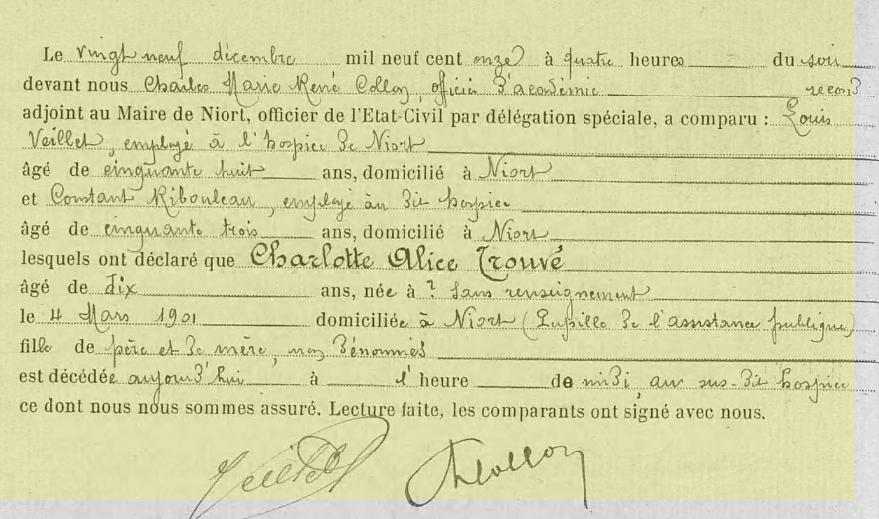 Le vingt neuf décembre mil neuf cent onze à quatre heures du soir
devant nous Charles Marie René Colloy, officier d'académie second
adjoint au Maire de Niort, officier de l'Etat-Civil par délégation spéciale, a comparu : Louis
Veillet, employé à l'hospice de Niort
âgé de cinquante huit ans, domicilié à Niort
et Constant Ribouleau, employé au dit hospice
âgé de cinquante trois ans, domicilié à Niort
lesquels ont déclaré que Charlotte Alice Trouvé
âgé de dix ans, née à ? Sans renseignement
le 4 Mars 1901 domiciliée à Niort (Pupille de l'assistance publique)
fille de père et de mère, non dénommés
est décédée aujourd'hui à l'heure de midi, au sus-dit hospice
ce dont nous nous sommes assuré. Lecture faite, les comparants ont signé avec nous.